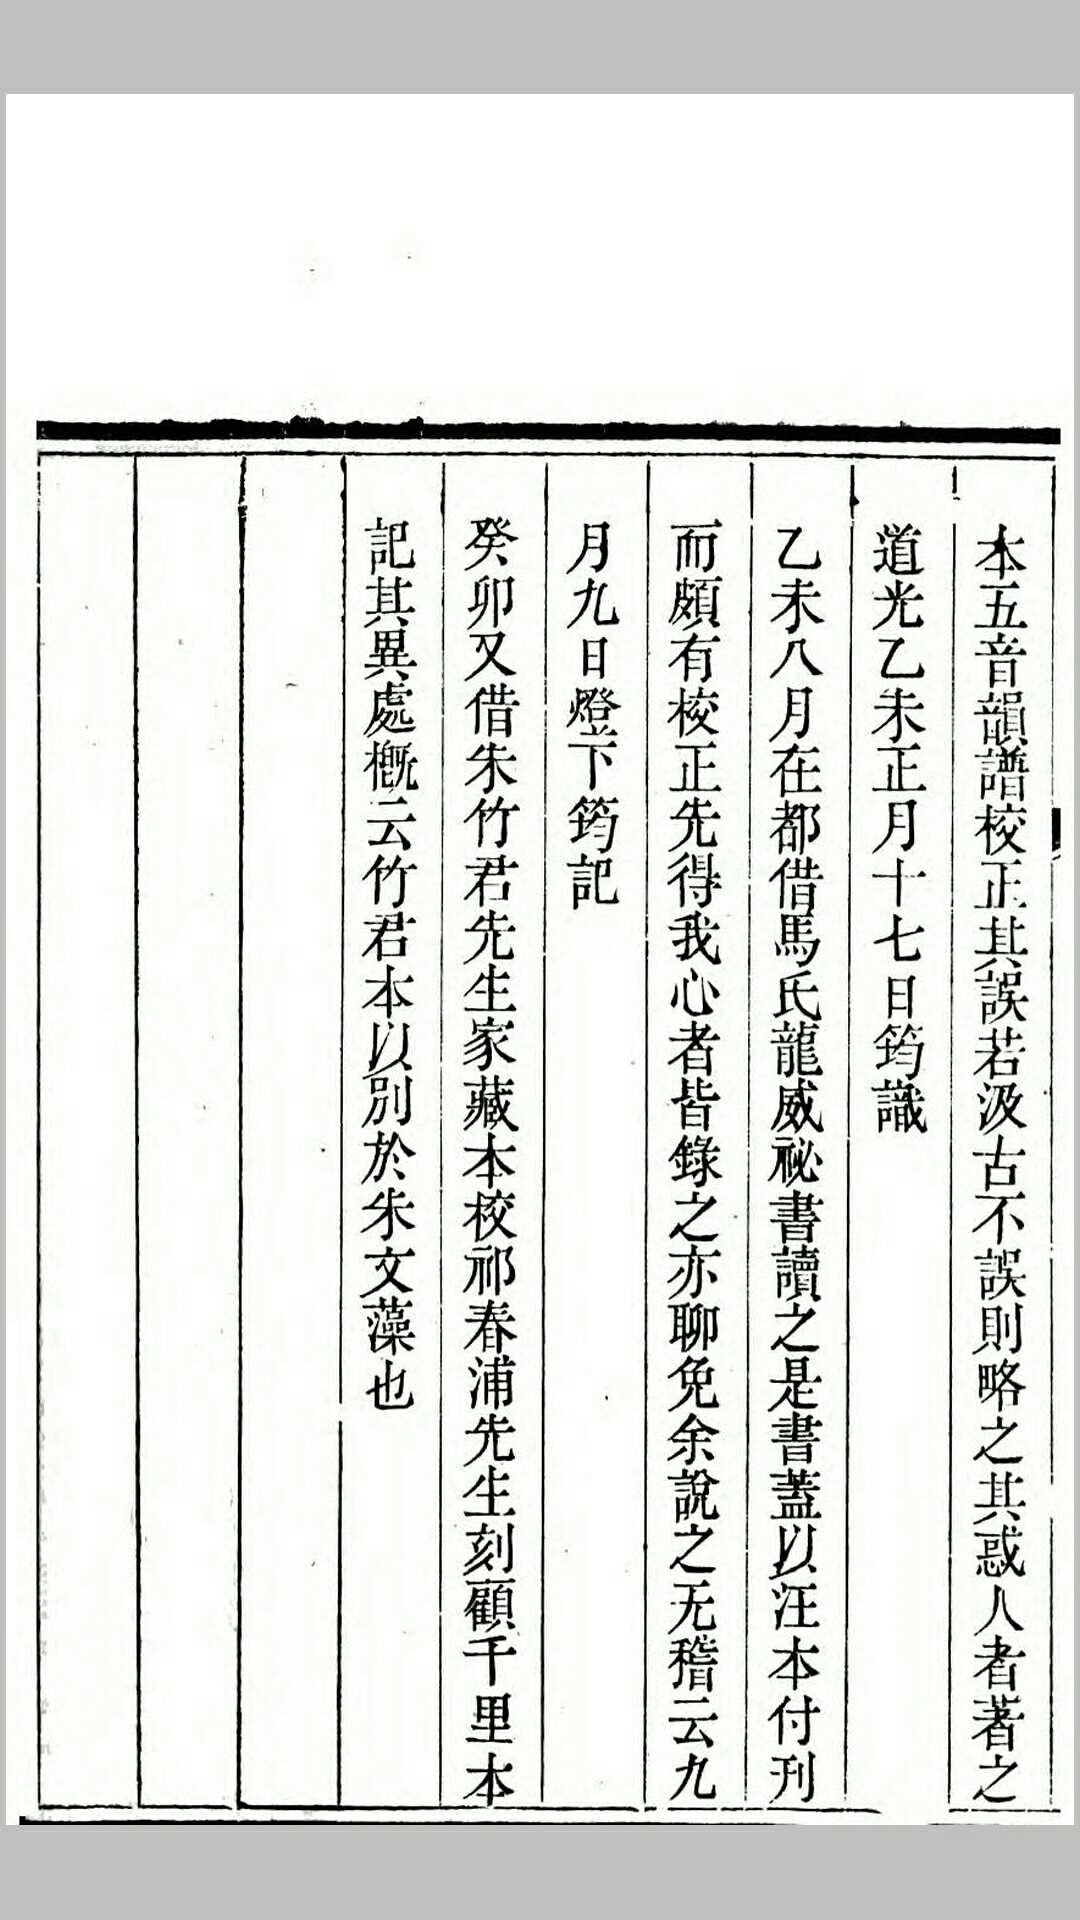 本五音韻譜校正其誤若汲古不誤則略之其惑人者著之
道光乙未正月十七日筠識
乙未八月在都借馬氏龍威祕書讀之是書蓋以汪本付刊
而頗有校正先得我心者皆錄之亦聊免余說之无稽云九
月九日燈下筠記
癸卯又借朱竹君先生家藏本校祁春浦先生刻顧千里本
記其異處概云竹君本以別於朱文藻也